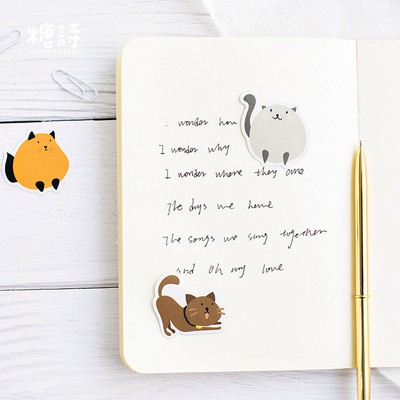 糖詩
I wonder how
I wonder why
I wonder where they are
The days we have
The songs we sung together
and oh my love